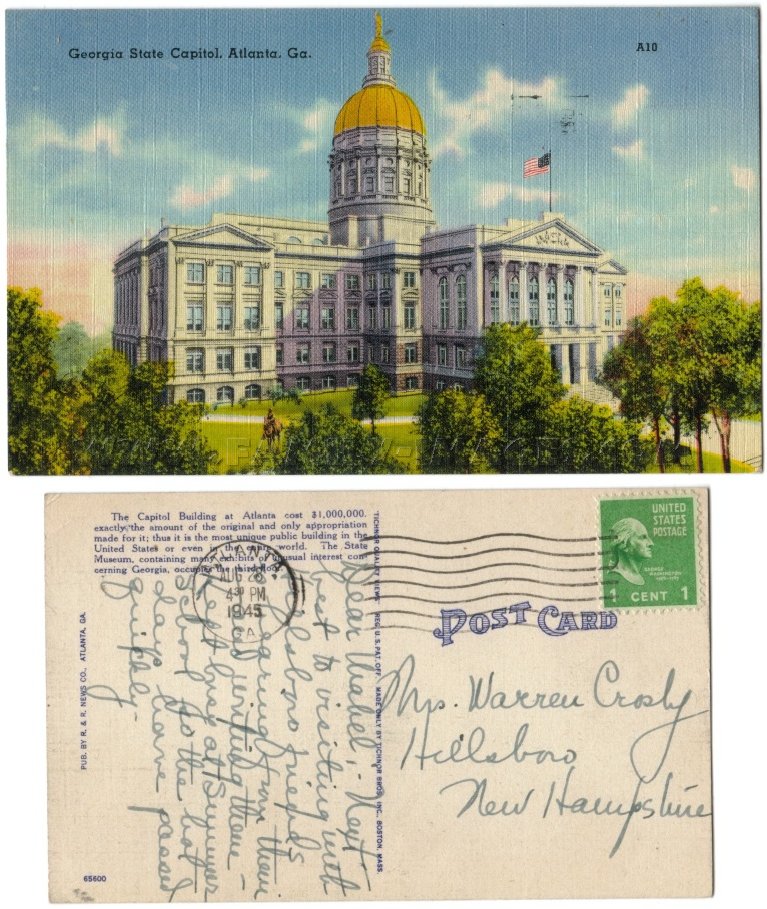 Georgia State Capitol, Atlanta, Ga.
A10
The Capitol Building at Atlanta cost $1,000,000.
exactly the amount of the original and only appropriation
made for it; thus it is the most unique public building in the
United States or even in the entire world. The State
Museum, containing many exhibits of unusual interest con-
cerning Georgia, occupies the third floor.
ATLANTA
AUG 28
4 30 PM
1945
GA.
UNITED
STATES
POSTAGE
GEORGE
WASHINGTON
1789-1797
1 CENT 1
POST CARD
TICHNOR QUALITY VIEWS REG. U.S. PAT. OFF. MADE ONLY BY TICHNOR BROS. INC., BOSTON, MASS.
PUB. BY R. & R. NEWS CO., ATLANTA, GA.
Dear Mabel:- Next
best to visiting with
Hillsboro friends
is hearing from them
Last day of Summer
School so the hot
days have passed
quickly-
Mrs. Warren Crosby
Hillsboro
New Hampshire
65600